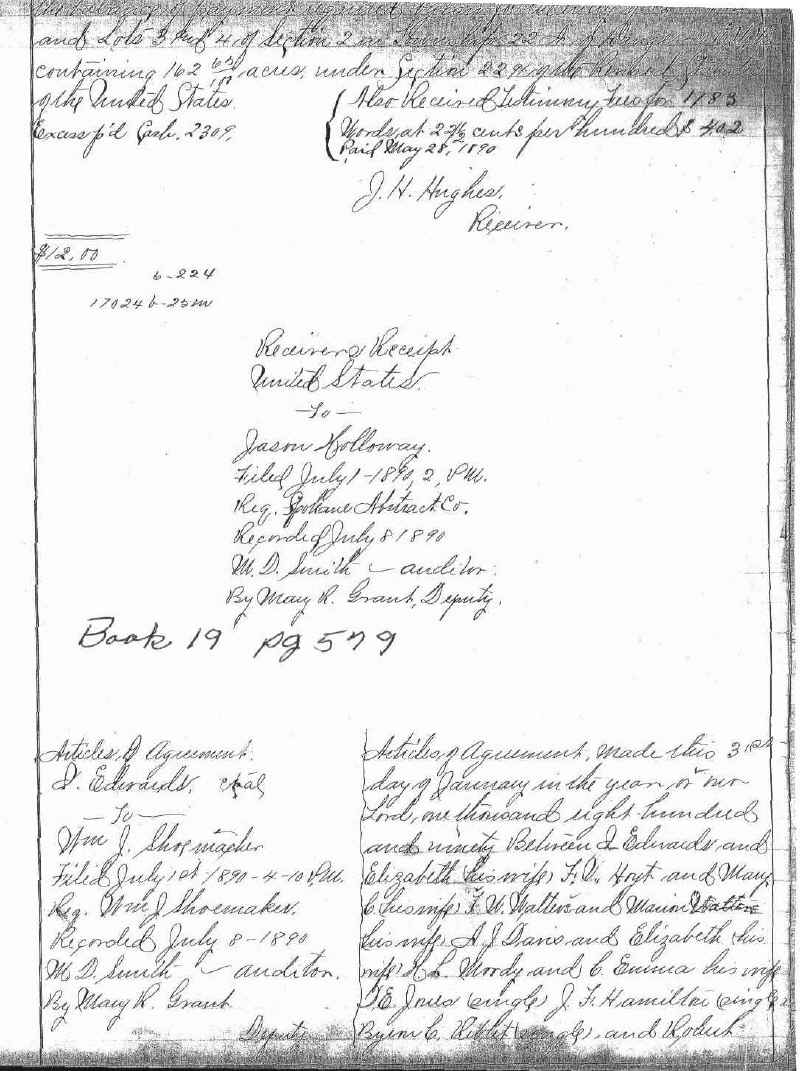 and Lots 3 and 4 of Section 2 in Township 22 N. of Range
containing 162 65/100 acres, under Section 229 of the Revised Statutes
of the United States.
Excess p'd Cash. 2309.
Also Received Testimony Fees for 1783
Words, at 22½ cents per hundred $ 4.02
Paid May 28, 1890
J. H. Hughes,
Receiver.
$12.00
6-224
17024 6-25m
Receivers Receipt
United States.
—To—
Jason Holloway.
Filed July 1-1890, 2, P.M.
Req. Spokane Abstract Co.
Recorded July 8 1890
M. D. Smith – auditor.
By Mary R. Grant, Deputy.
Book 19 pg 579
Articles of Agreement.
I. Edwards, et al
—To—
Wm J. Shoemacher
Filed July 1st 1890-4-10 P.M.
Req. Wm J Shoemaker.
Recorded July 8-1890
M D. Smith – auditor.
By Mary R. Grant
Deputy
Articles of Agreement, Made this 31st
day of January in the year of our
Lord, one thousand eight hundred
and ninety Between I Edwards and
Elizabeth his wife, F. D. Hoyt and Mary
C. his wife, F. W. Watters and Marion Watters
his wife A. J. Davis and Elizabeth his
wife L. Moody and C. Emma his wife
T. E. Jones (single) J. F. Hamilton (single)
Byron C. Riblet (single), and Robert